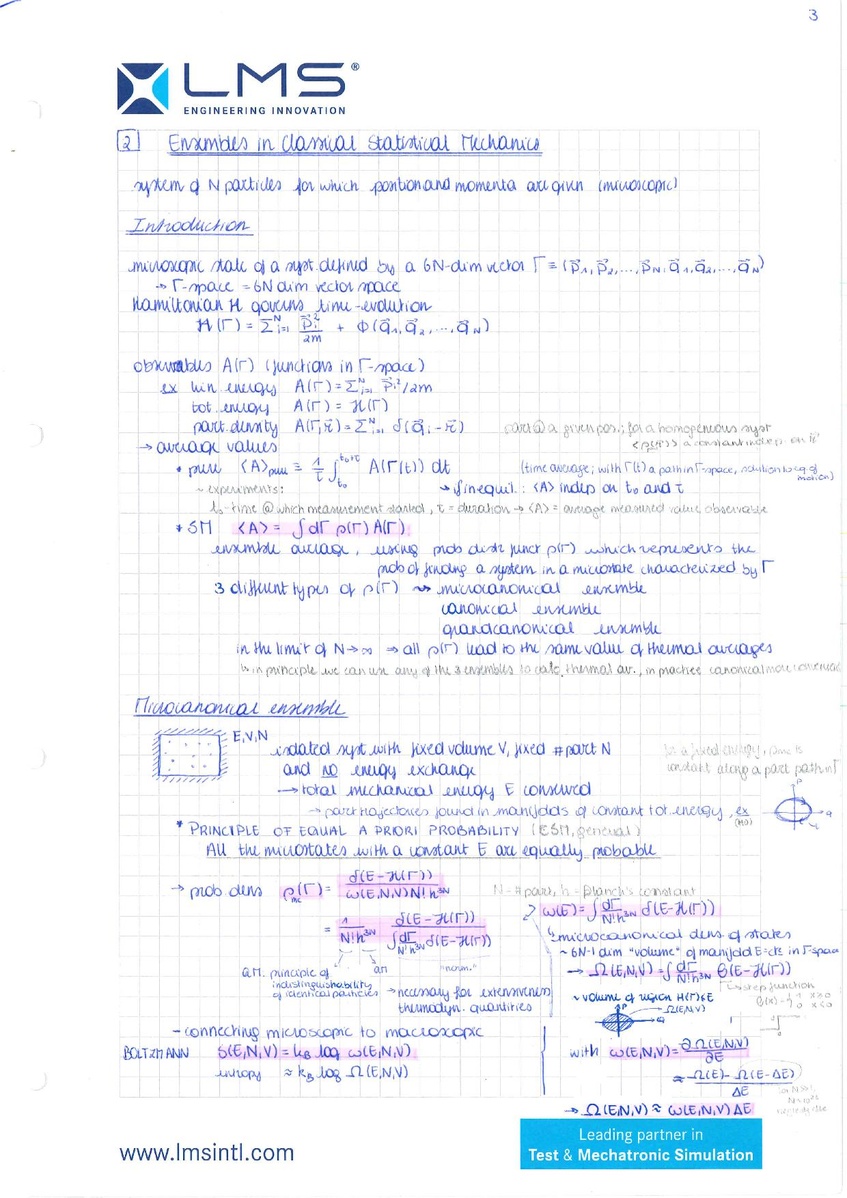 3
LMS®
ENGINEERING INNOVATION
2 Ensembles in Classical Statistical Mechanics
system of N particles for which position and momenta are given (microscopic)
Introduction
microscopic state of a syst. defined by a 6N-dim vector Γ ≡ (p⃗₁, p⃗₂, ..., p⃗N, q⃗₁, q⃗₂, ..., q⃗N)
→ Γ-space = 6N dim vector space
Hamiltonian H governs time-evolution
H(Γ) = Σᴺᵢ₌₁ p⃗ᵢ²/2m + Φ(q⃗₁, q⃗₂, ..., q⃗N)
observables A(Γ) (functions in Γ-space)
ex kin. energy A(Γ) = Σᴺᵢ₌₁ p⃗ᵢ²/2m
tot. energy A(Γ) = H(Γ)
part. density A(Γ; r⃗) = Σᴺᵢ₌₁ δ(q⃗ᵢ - r⃗) part @ a given pos.; for a homogeneous syst
<ρ(r⃗)> a constant indep. on r⃗
→ average values
* <A> ≡ 1/τ ∫ₜ₀^(t₀+τ) A(Γ(t)) dt (time average; with Γ(t) a path in Γ-space, solution to eq. of motion)
~ experiments: ↳ if in equil.: <A> indep on t₀ and τ
t₀ = time @ which measurement started, τ = duration → <A> = average measured value observable
* SM <A> = ∫dΓ ρ(Γ) A(Γ)
ensemble average, using prob distr funct ρ(Γ) which represents the
prob of finding a system in a microstate characterized by Γ
3 different types of ρ(Γ) ⇝ microcanonical ensemble
canonical ensemble
grandcanonical ensemble
in the limit of N→∞ → all ρ(Γ) lead to the same value of thermal averages
↳ in principle we can use any of the 3 ensembles to calc. thermal av., in practice canonical more
Microcanonical ensemble
E,V,N
isolated syst with fixed volume V, fixed #part N
and no energy exchange
→ total mechanical energy E conserved
for a fixed energy,
constant along a part path in Γ
→ part trajectories found in manifolds of constant tot. energy, ex (HO)
p
q
* PRINCIPLE OF EQUAL A PRIORI PROBABILITY (ESM, general)
All the microstates with a constant E are equally probable
→ prob dens ρmc(Γ) = δ(E-H(Γ)) / ω(E,N,V)N!h³ᴺ N = #part, h = Planck's constant
= 1/N!h³ᴺ δ(E-H(Γ)) / ∫dΓ/N!h³ᴺ δ(E-H(Γ))
QM. principle of indistinguishability of identical particles
QM
"norm."
→ necessary for extensiveness
thermodyn. quantities
ω(E) = ∫dΓ/N!h³ᴺ δ(E-H(Γ))
↳ microcanonical dens of states
~ 6N-1 dim "volume" of manifold E=cte in Γ-space
→ Ω(E,N,V) = ∫dΓ/N!h³ᴺ Θ(E-H(Γ))
↳ step function
θ(x) = { 1 x≥0
0 x<0
~ volume of region H(Γ)≤E
p
Ω(E,N,V)
q
with ω(E,N,V) = ∂Ω(E,N,V)/∂E
≈ Ω(E) - Ω(E-ΔE) / ΔE
→ Ω(E,N,V) ≈ ω(E,N,V) ΔE
- connecting microscopic to macroscopic
BOLTZMANN S(E,N,V) = kB log ω(E,N,V)
entropy ≈ kB log Ω(E,N,V)
www.lmsintl.com
Leading partner in
Test & Mechatronic Simulation